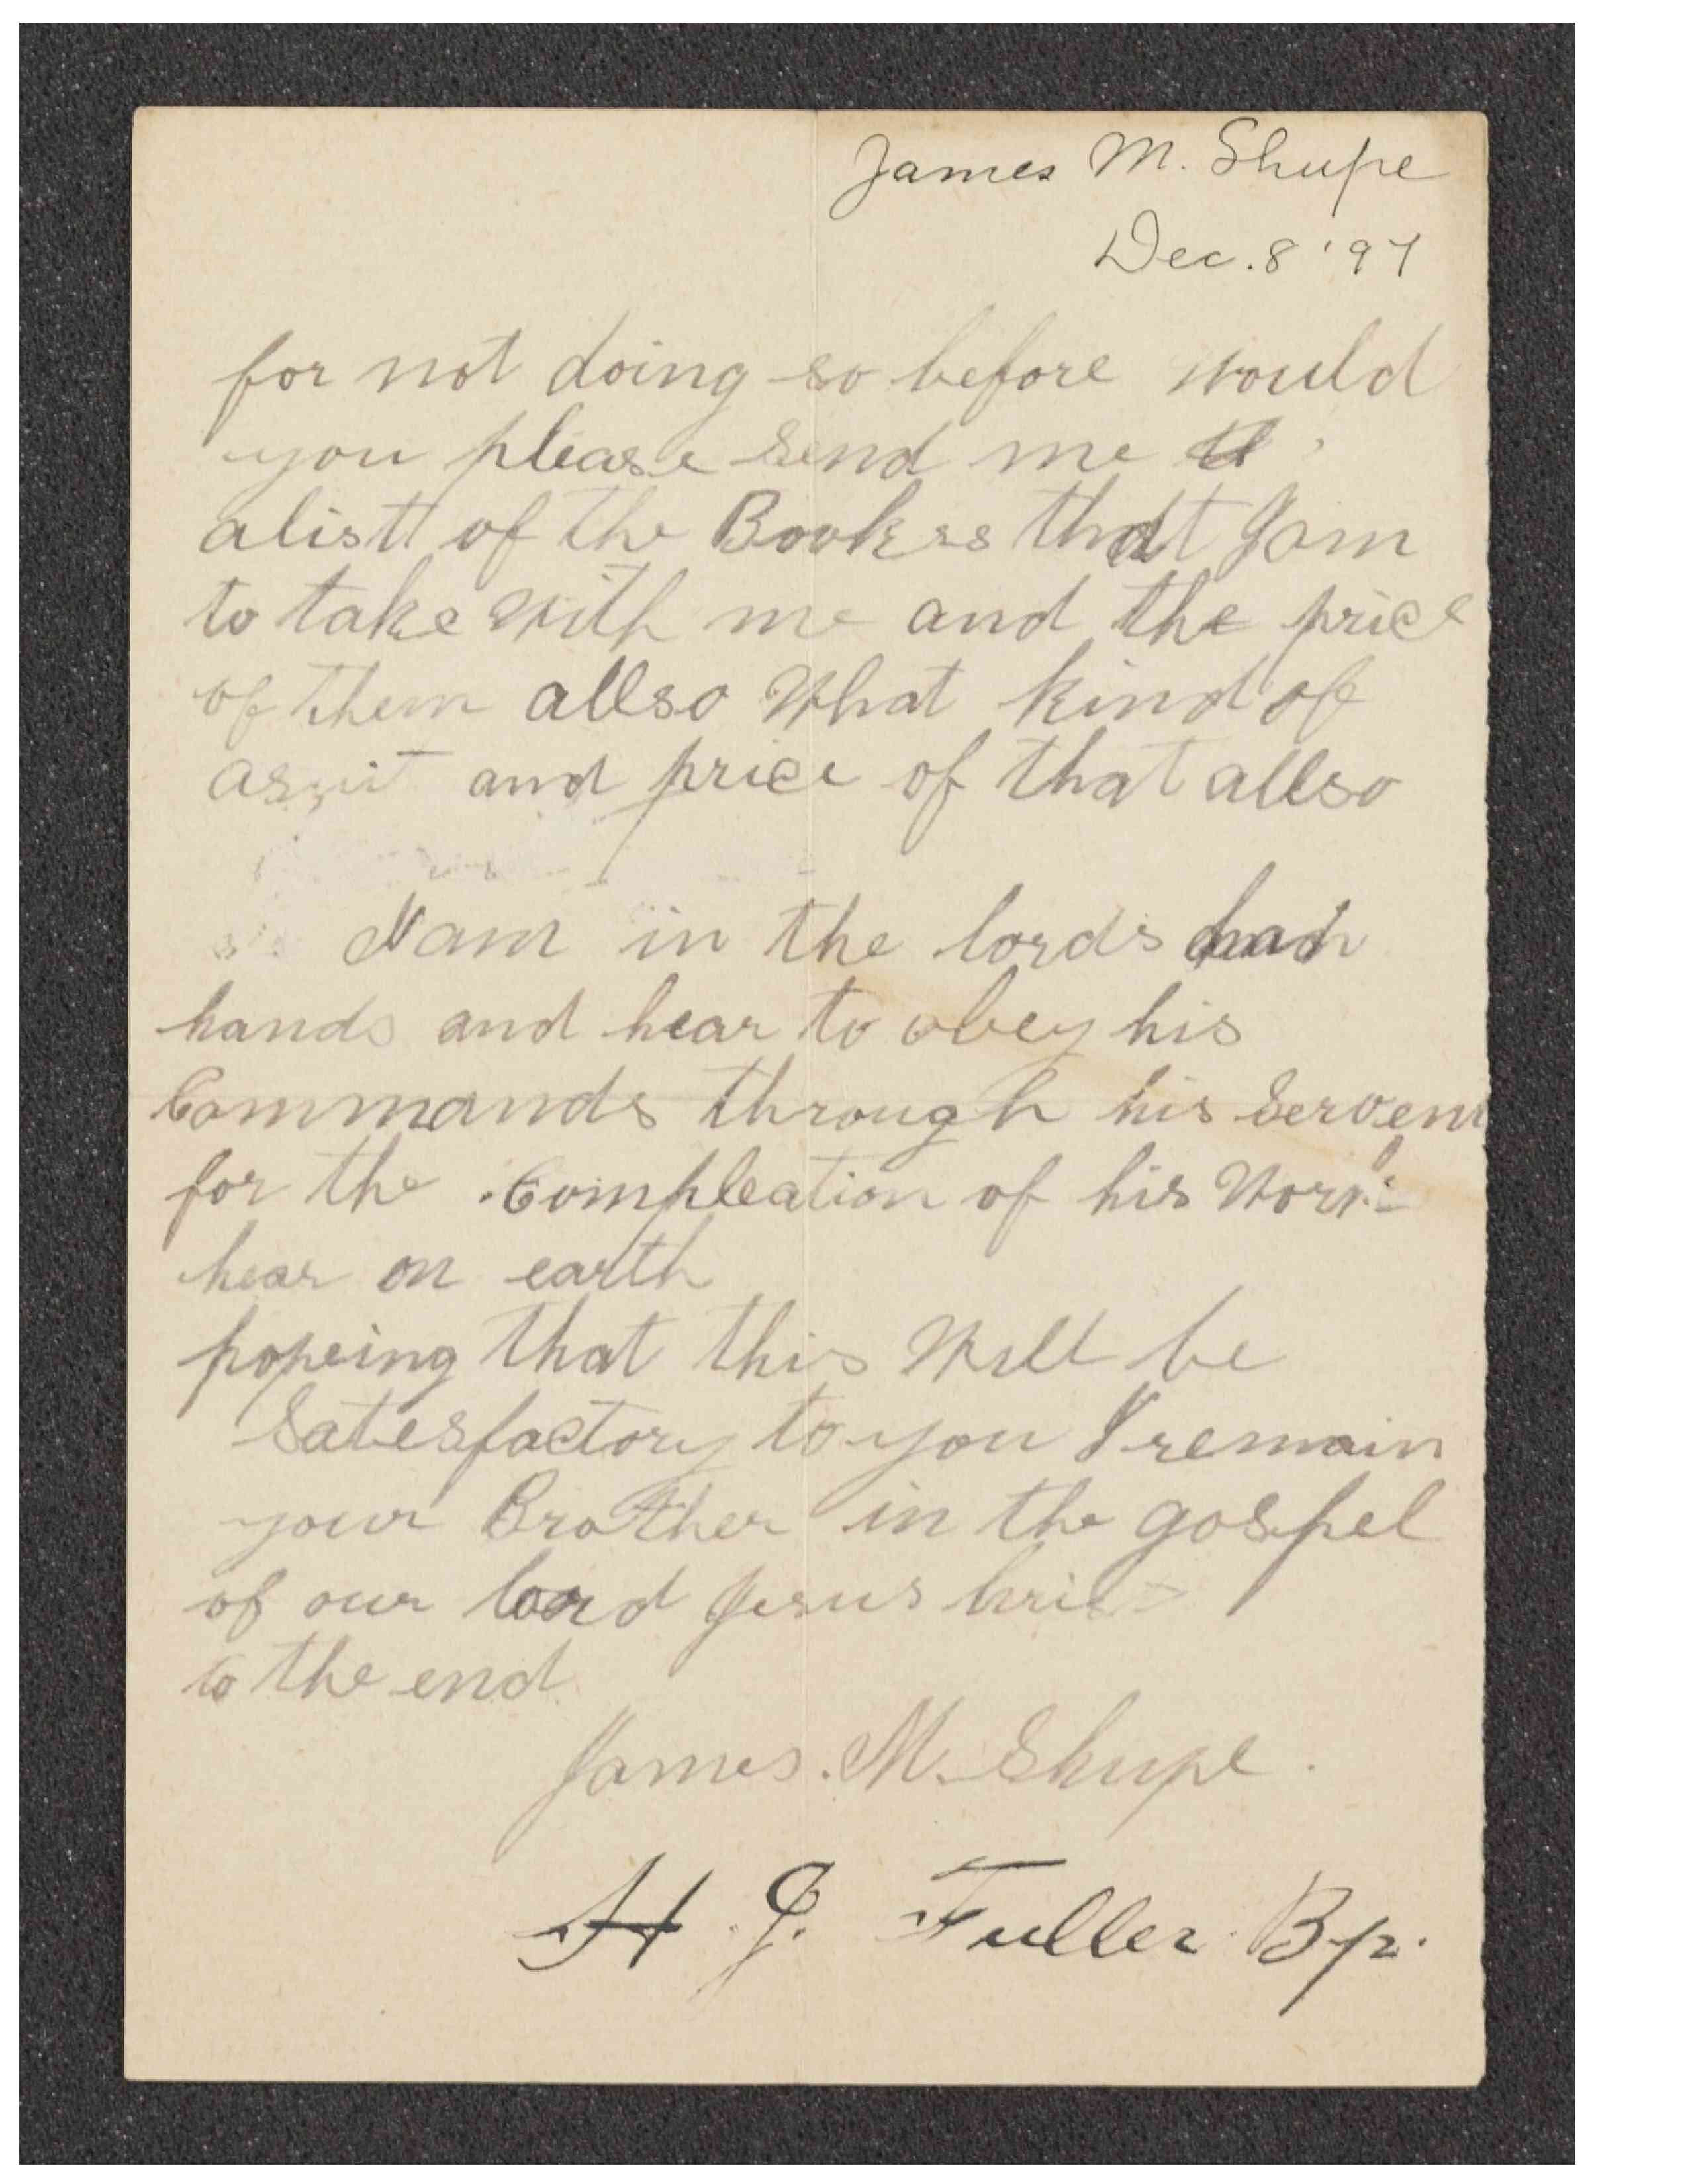 James M. Shupe
Dec. 8 '97
for not doing so before would
you please send me
alistt of the Bookss that Jam
to take with me and the price
of them allso What kind of
asuit and price of that allso
I am in the lords
hands and hear to obey his
Commands through his Servent
for the Compleation of his Work
hear on earth
hopeing that this Will be
Satesfactory to you I remain
your Brother in the gospel
of our lord Jesus
to the end
James. M. Shupe.
H J. Fuller Bp.